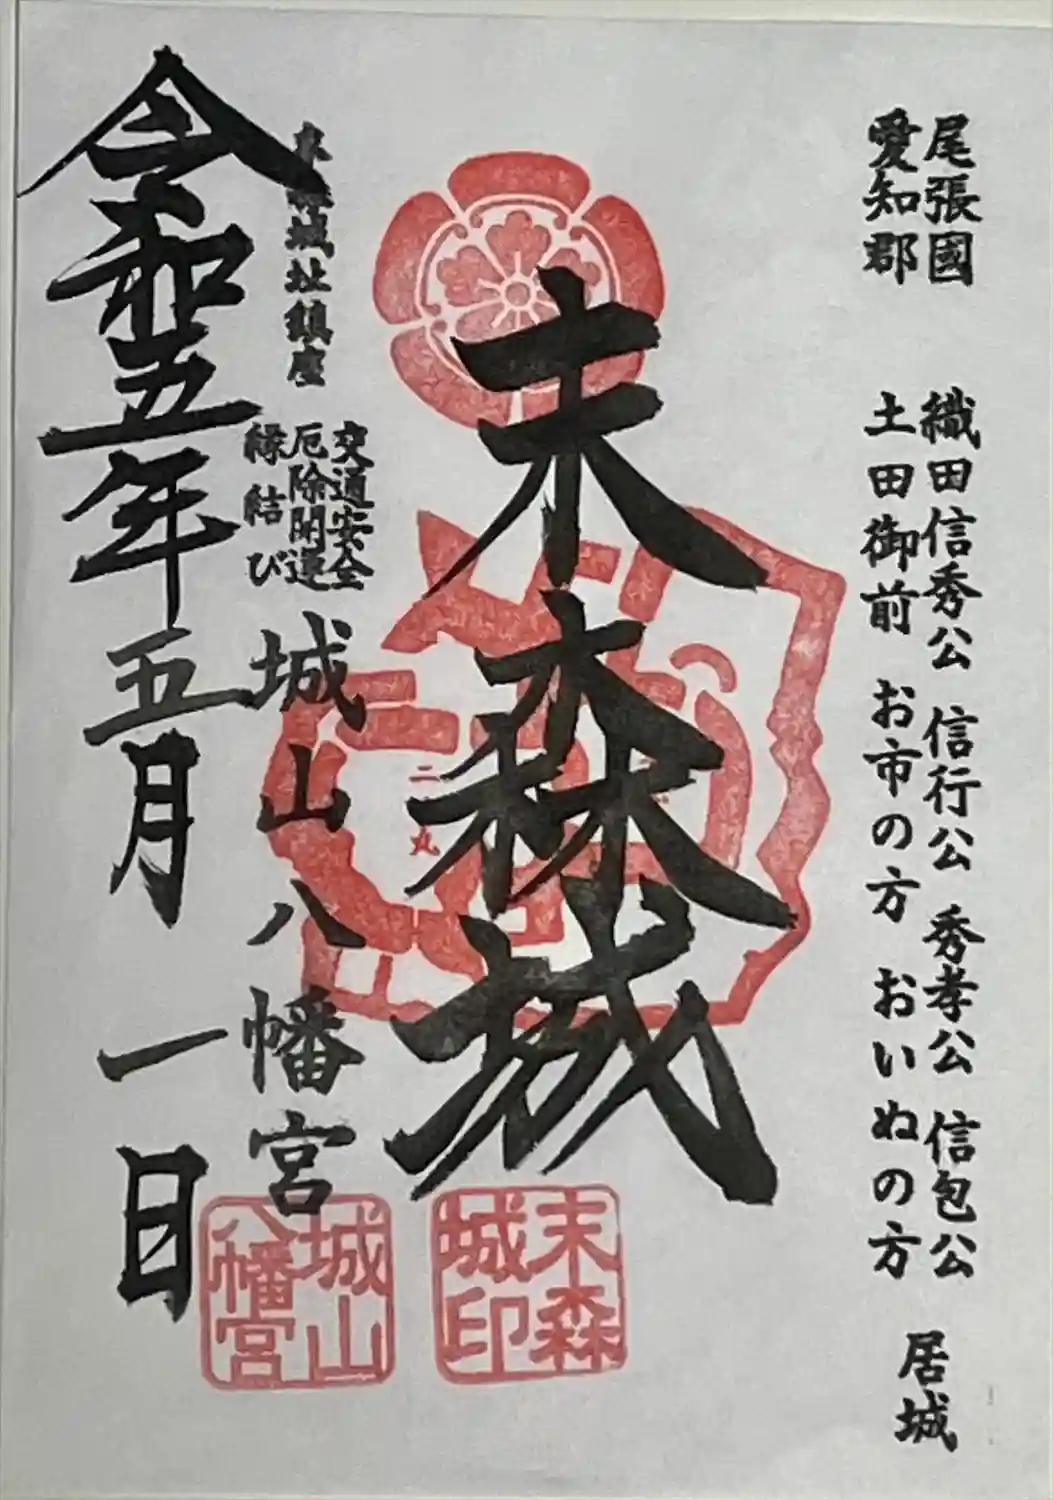 尾張國
愛知郡
織田信秀公 信行公 秀孝公 信包公
土田御前 お市の方 おいぬの方
居城
末森城
二丸
末森
城印
末森城址鎮座
交通安全
厄除開運
縁結び
城山八幡宮
城山
八幡宮
令和五年五月一日